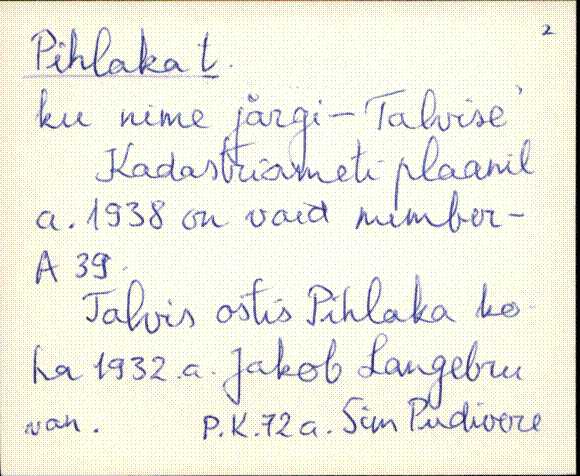 2
Pihlaka t.
ku nime järgi - Talvise'
Kadastriameti plaanil
a. 1938 on vaid number -
A 39.
Talvis ostis Pihlaka ko-
ha 1932.a. Jakob Langebru
van. P.K. 72 a. Sim Pudivere